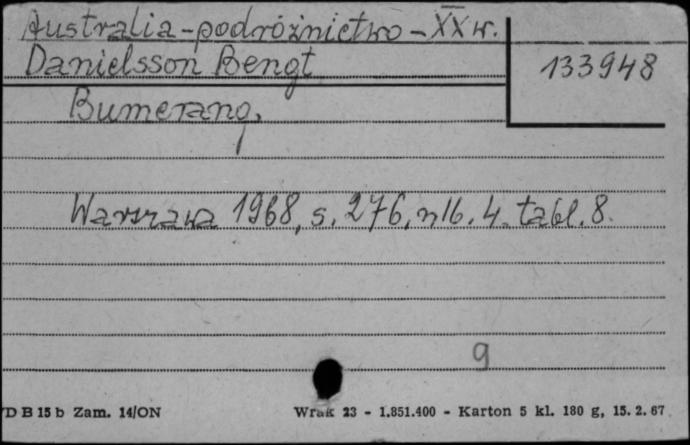 Australia - podróżnictwo - XX w.
Danielsson Bengt
133948
Bumerang.
Warszawa 1968, s. 276, nlb. 4. tabl. 8.
9
D B 15 b Zam. 14/ON
Wrak 23 - 1.851.400 - Karton 5 kl. 180 g, 15. 2. 67